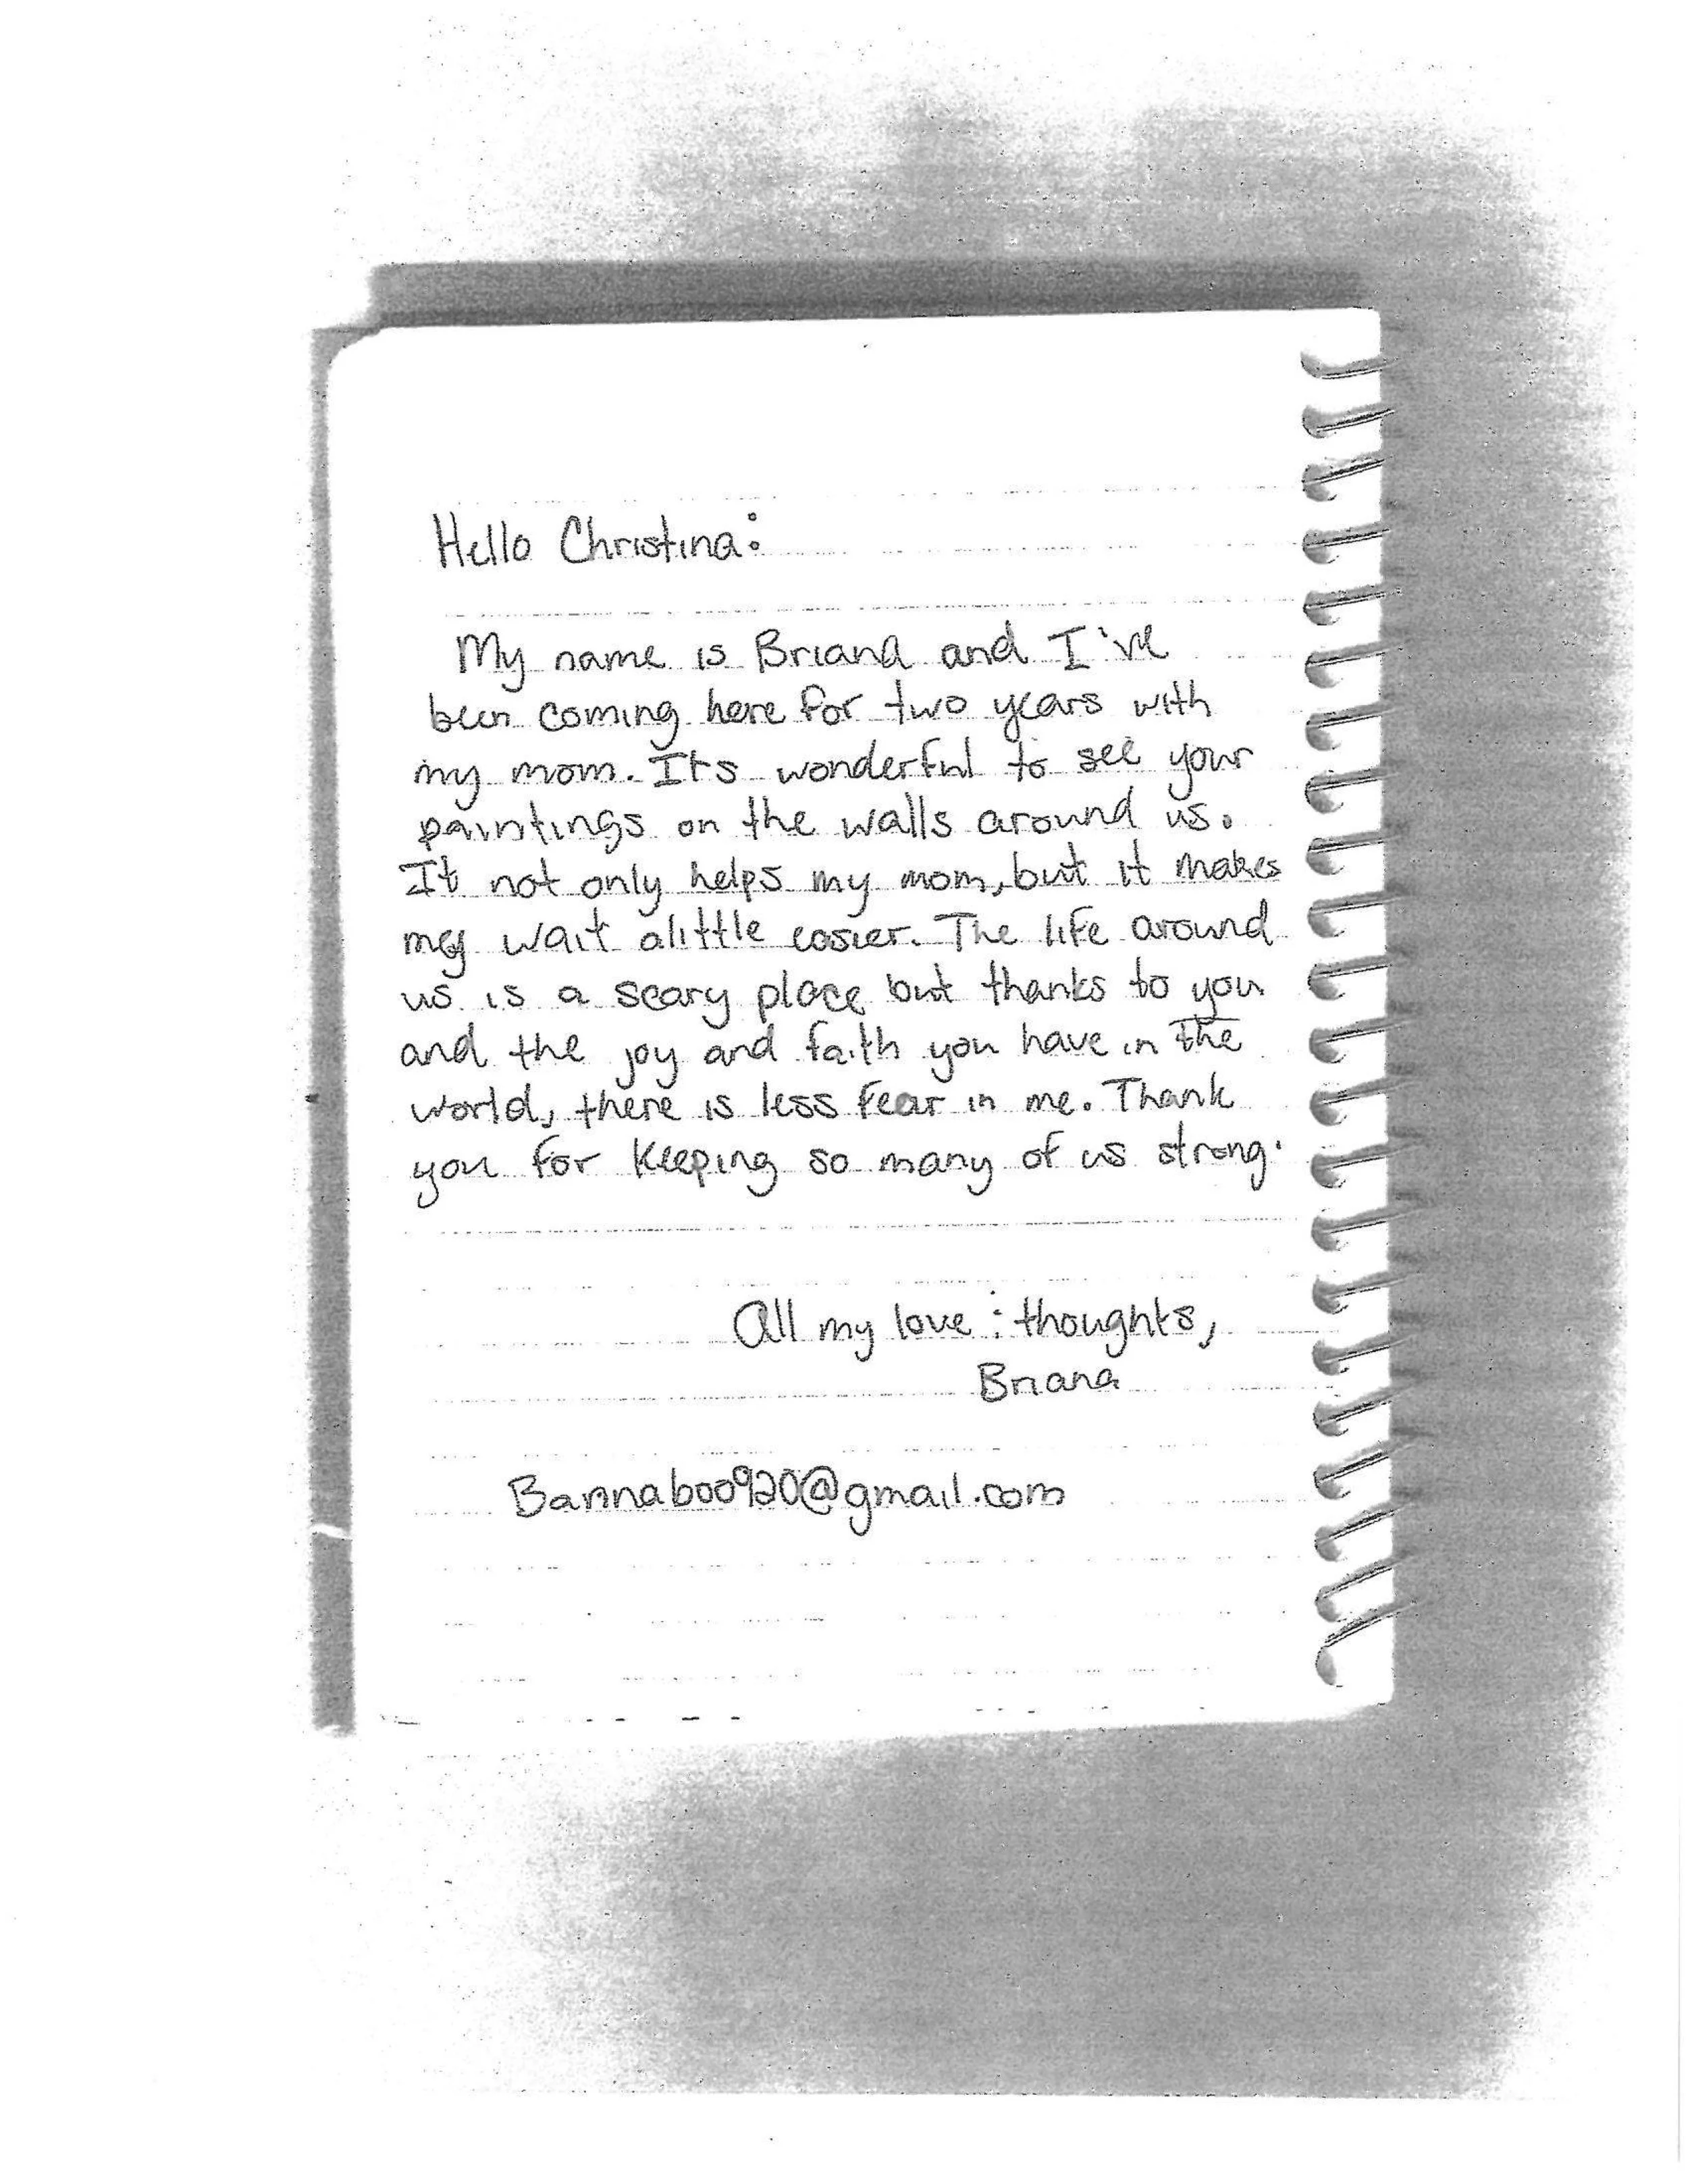 Hello Christina:
My name is Briana and I've
been coming here for two years with
my mom. Its wonderful to see your
paintings on the walls around us.
It not only helps my mom, but it makes
my wait alittle easier. The life around
us is a scary place but thanks to you
and the joy and faith you have in the
world, there is less fear in me. Thank
you for keeping so many of us strong.
All my love : thoughts,
Briana
Bannaboo920@gmail.com